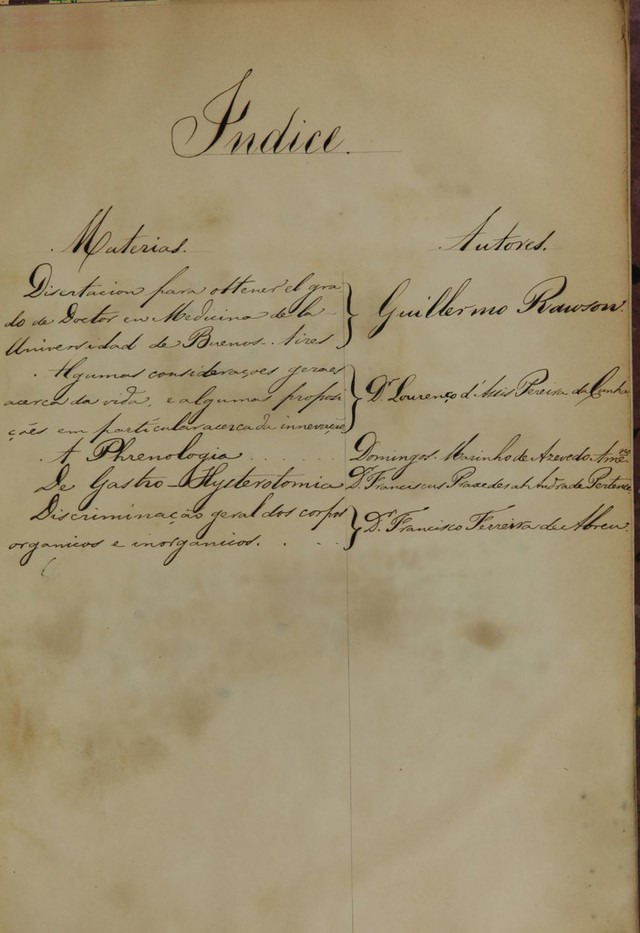 Indice.
Materias. Autores.
Disertacion para obttener el gra
do de Doctor en Medicina de la
Universidad de Buenos-Aires } Guillermo Rawson.
Algumas considerações geraes
acerca da vida, e algumas proposi
ções em particular acerca da innervação } Dr. Lourenço d'Assis Pereira da Cunha
A Phrenologia . . . . . . Domingos Marinho de Azevedo Ameco
De Gastro-Hysterotomia Dr. Franciscus Praxedes ab Andrade Pertence
Discriminação geral dos corpos
organicos e inorganicos. . . . } Dr. Francisco Ferreira de Abreu.